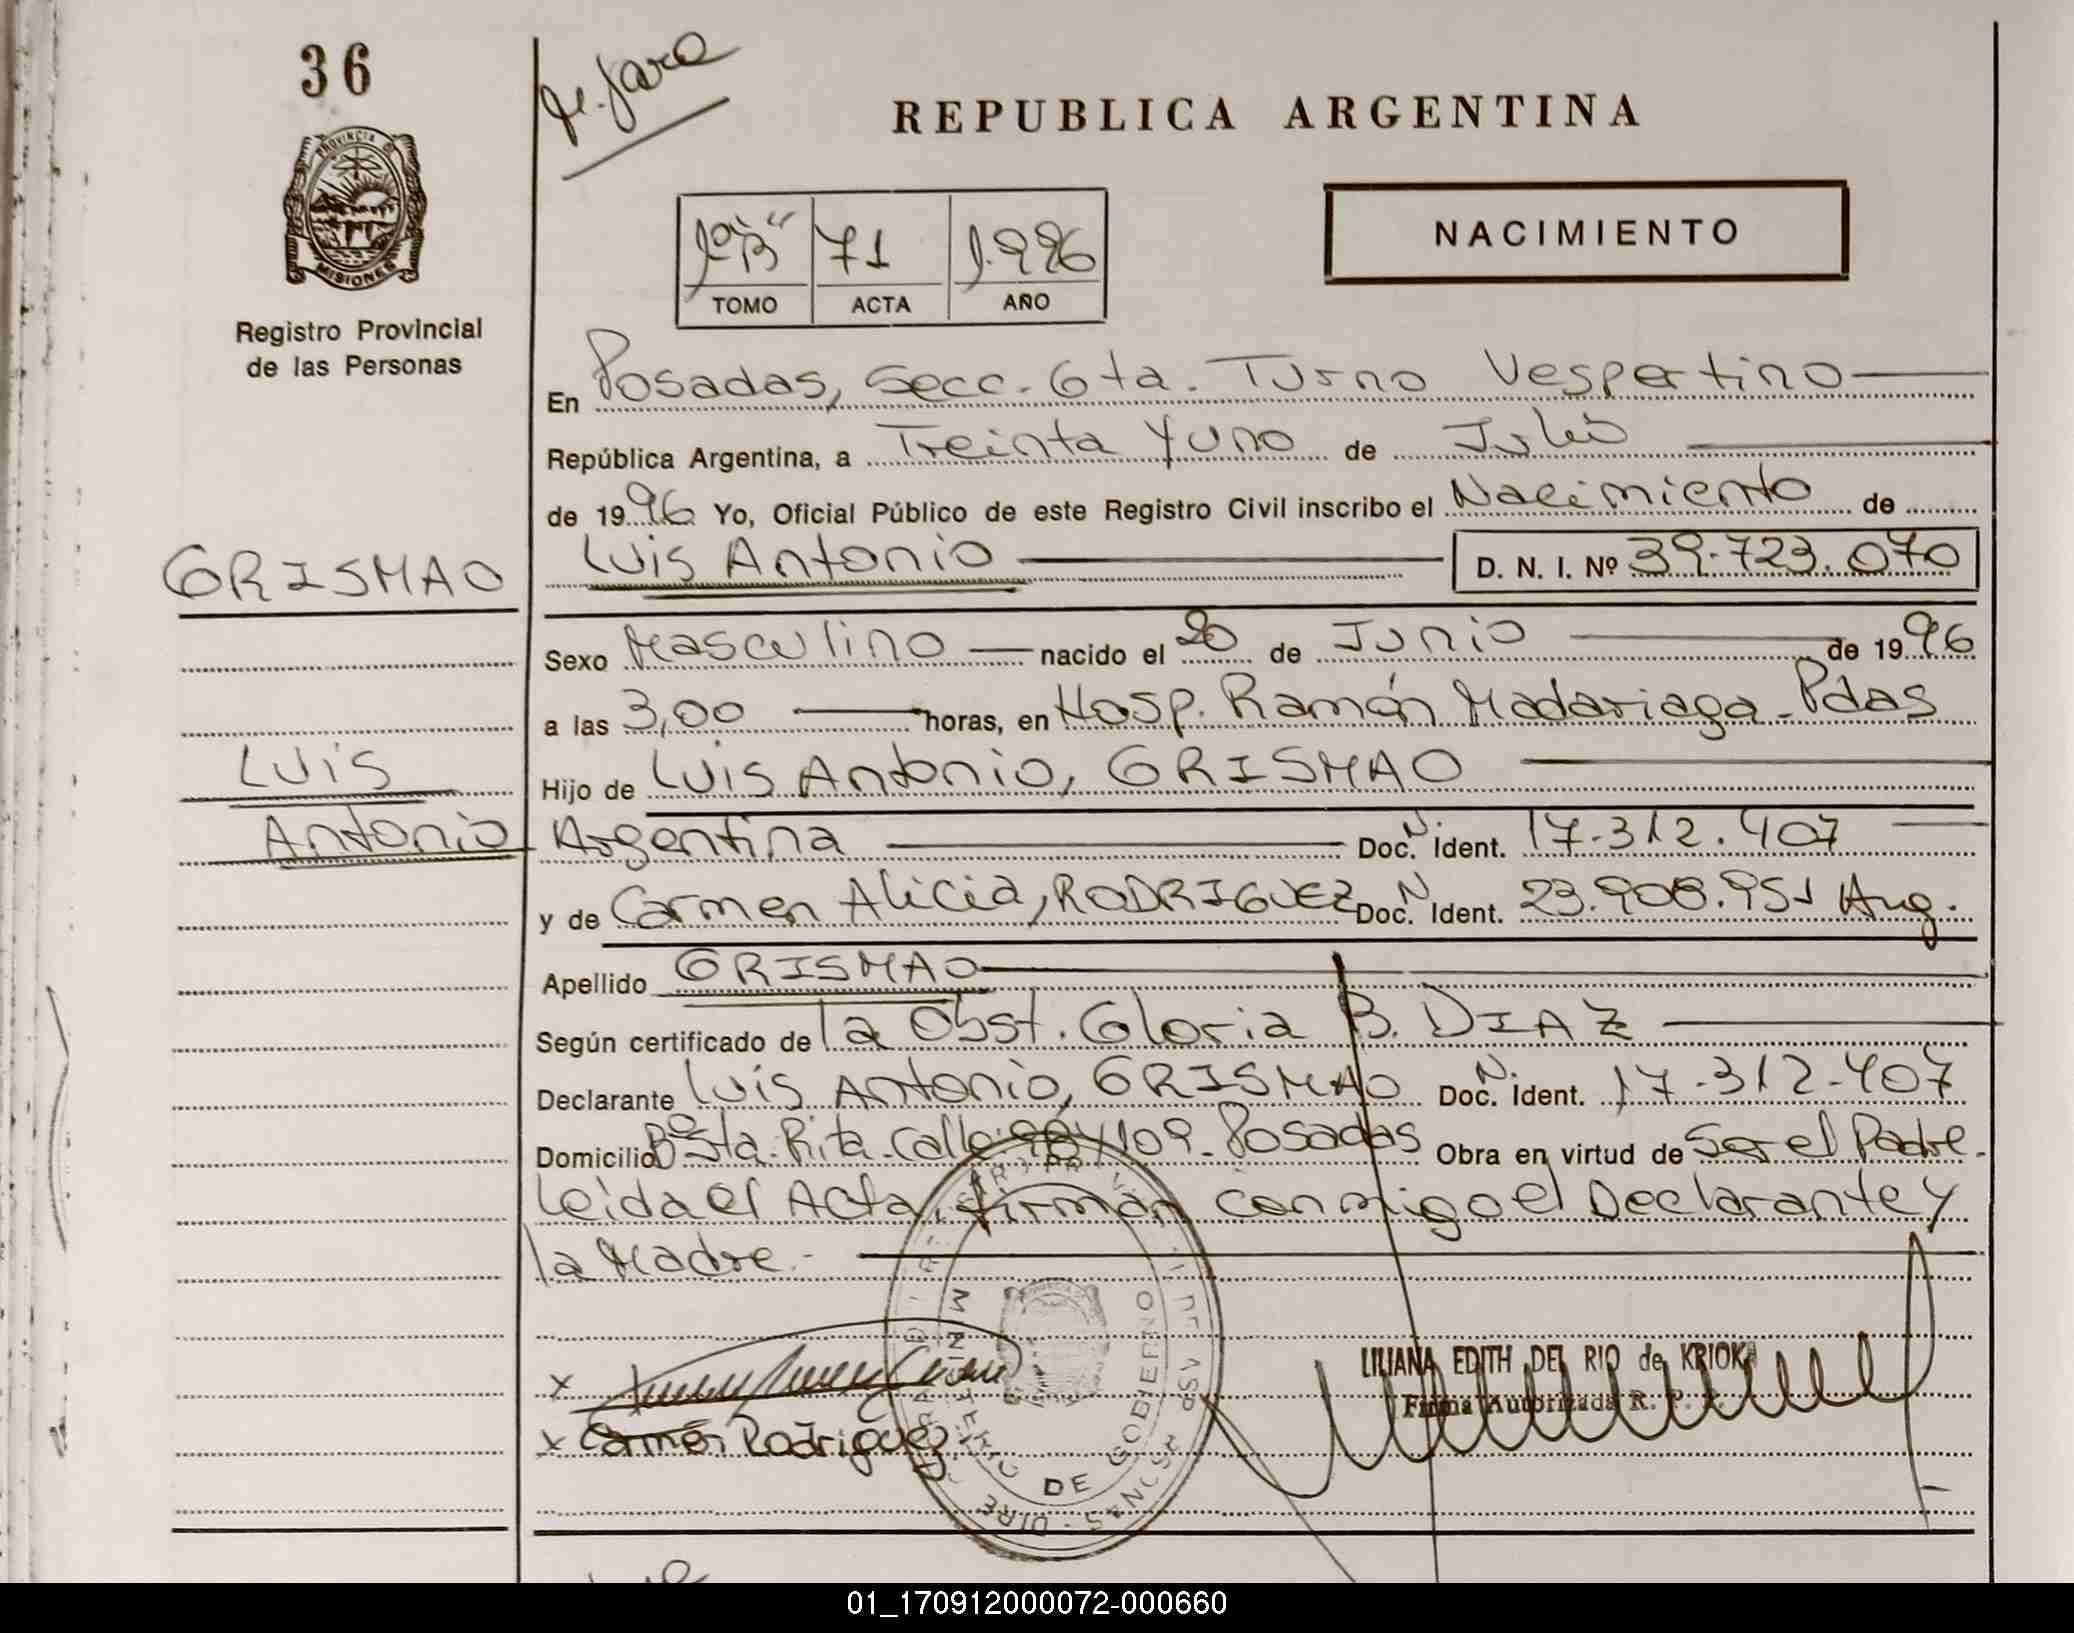 36
REPUBLICA ARGENTINA
PROVINCIA DE
MISIONES
Registro Provincial
de las Personas
1º "B" 71 1.996
TOMO ACTA AÑO
NACIMIENTO
En Posadas, Secc. 6ta. Turno Vespertino
República Argentina, a Treinta y uno de Julio
de 1996 Yo, Oficial Público de este Registro Civil inscribo el Nacimiento de
GRISMAO
Luis Antonio D. N. I. Nº 39.723.070
Sexo Masculino nacido el 20 de Junio de 1996
a las 3,00 horas, en Hosp. Ramón Madariaga - Pdas
Luis
Antonio
Hijo de Luis Antonio, GRISMAO
Argentina Doc. N. Ident. 17.312.407
y de Carmen Alicia, RODRIGUEZ Doc. N Ident. 23.908.951 Arg.
Apellido GRISMAO
Según certificado de la Obst. Gloria B. DIAZ
Declarante Luis Antonio, GRISMAO Doc. N. Ident. 17.312.407
Domicilio Bº Sta. Rita - Calle 109 - Posadas Obra en virtud de Ser el Padre.
Leida el Acta, firman conmigo el Declarante y
la Madre.-
MINISTERIO DE GOBIERNO
x
x Carmen Rodriguez
LILIANA EDITH DEL RIO de KRIOKA
Firma Autorizada R. P. P.
01_170912000072-000660